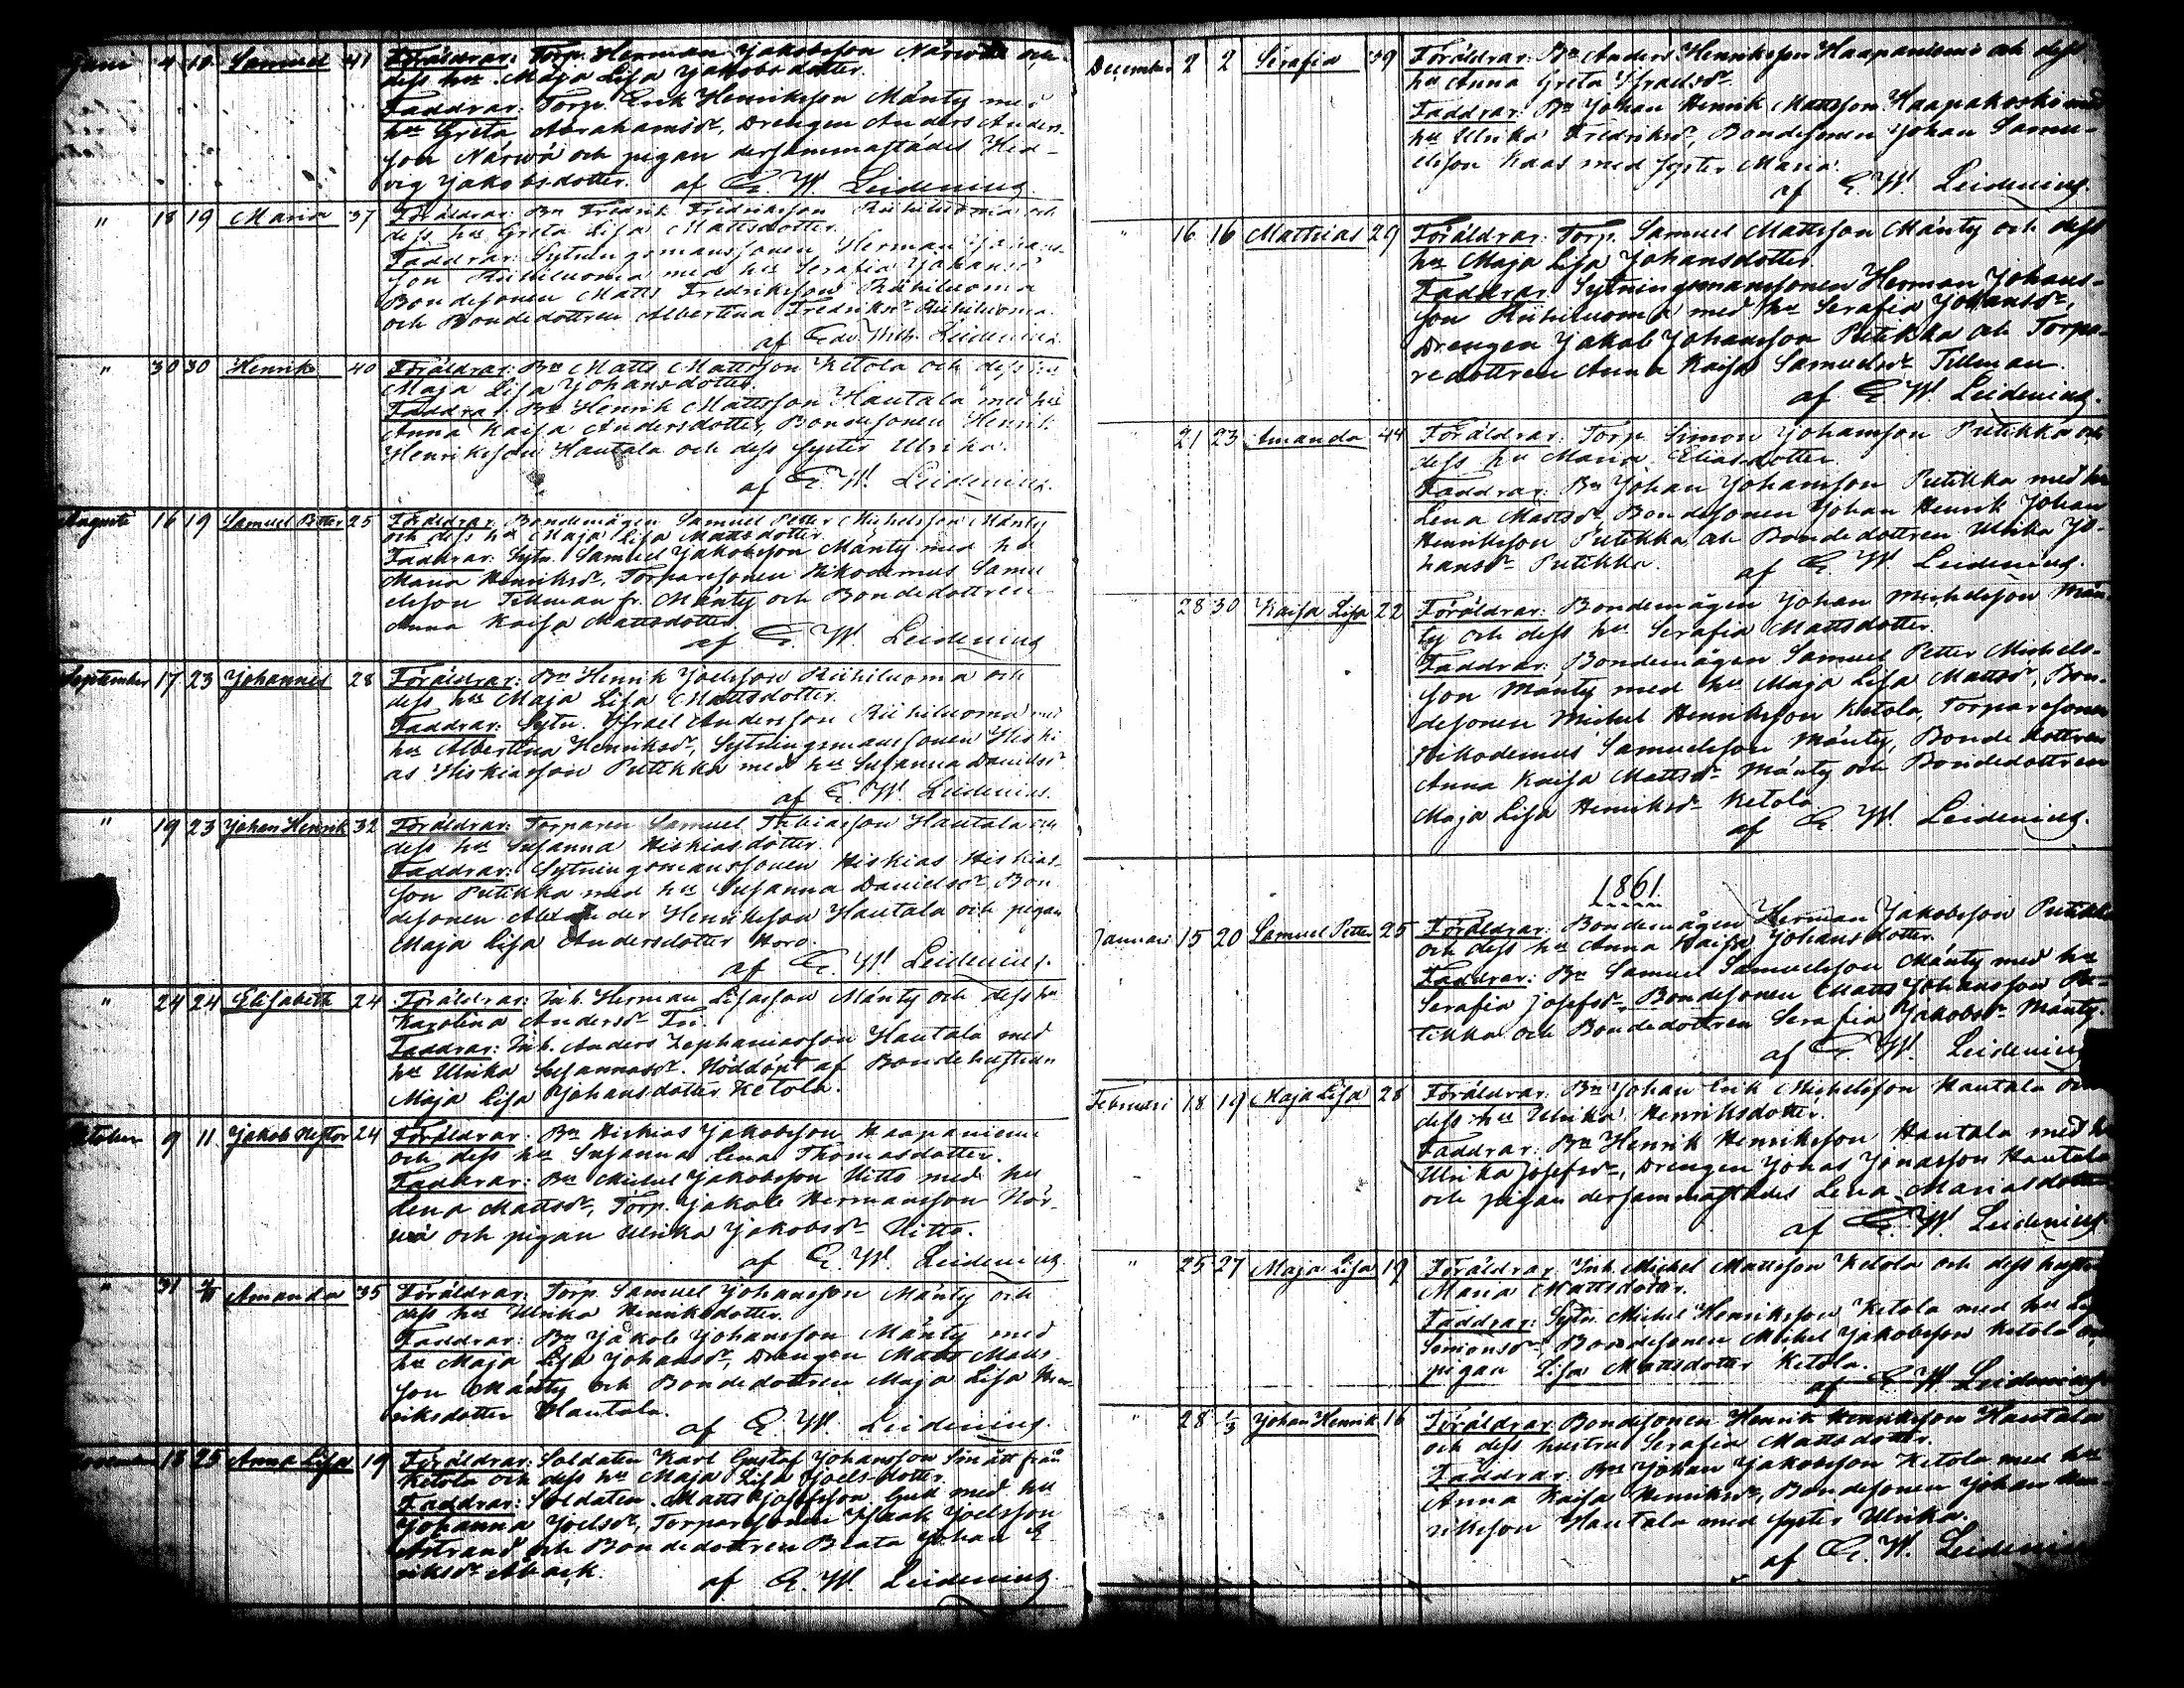 Juni 4 10 Samuel 41 Föräldrar: Torp. Herman Jakobsson Närwä och
dess hu Maja Lisa Jakobsdotter.
Faddrar: Torp. Erik Henriksson Mänty med
hu Greta Abrahamsdr, Drengen Anders Anders-
son Närwä och pigan dersammastädes Hed-
vig Jakobsdotter. af E. W. Leidenius.
" 18 19 Maria 37 Föräldrar: Bn Fredrik Fredriksson Riihiluoma och
dess hu Greta Lisa Mattsdotter.
Faddrar: Sytningsmanssonen Herman Johans-
son Riihiluoma med hu Serafia Johansdr
Bondesonen Matts Fredriksson Riihiluoma
och Bondedottren Albertina Fredriksdr Riihiluoma.
af Edv. Wilh. Leidenius.
" 30 30 Henrik 40 Föräldrar: Bn Matts Mattsson Ketola och dess hu
Maja Lisa Johansdotter.
Faddrar: Bn Henrik Mattsson Hautala med hu
Anna Kaisa Andersdotter, Bondesonen Henrik
Henriksson Hautala och dess syster Ulrika.
af E. W. Leidenius.
Augusti 16 19 Samuel Petter 25 Föräldrar: Bondemågen Samuel Petter Michelsson Mänty
och dess hu Maja Lisa Mattsdotter.
Faddrar: Sytn. Samuel Jakobsson Mänty med hu
Maria Henriksdr, Torparesonen Nikodemus Samu
elsson Tillman fr. Mänty och Bondedottren
Anna Kaisa Mattsdotter.
af E. W. Leidenius
September 17 23 Johannes 28 Föräldrar: Bn Henrik Joelsson Riihiluoma och
dess hu Maja Lisa Mattsdotter.
Faddrar: Sytn. Israel Andersson Riihiluoma med
hu Albertina Henriksdr, Sytningsmanssonen Hiski
as Hiskiasson Putikka med hu Susanna Danielsdr
af E. W. Leidenius.
" 19 23 Johan Henrik 32 Föräldrar: Torparen Samuel Tobiasson Hautala och
dess hu Susanna Hiskiasdotter.
Faddrar: Sytningsmanssonen Hiskias Hiskias-
son Putikka med hu Susanna Danielsdr Bon
desonen Alexander Henriksson Hautala och pigan
Maja Lisa Andersdotter Horo.
af E. W. Leidenius.
" 24 24 Elisabeth 24 Föräldrar: Inh. Herman Lisasson Mänty och dess hu
Karolina Andersdr Fri.
Faddrar: Inh. Anders Zephaniasson Hautala med
hu Ulrika Susannasdr. Nöddöpt af Bondehustrun
Maja Lisa Johansdotter Ketola.
October 9 11 Jakob Nestor 24 Föräldrar: Bn Hiskias Jakobsson Haapaniemi
och dess hu Susanna Lena Thomasdotter.
Faddrar: Bn Michel Jakobsson Uitto med hu
Lena Mattsdr, Torp. Jakob Hermansson När-
wä och pigan Ulrika Jakobsdr Uitto.
af E. W. Leidenius.
" 31 Amanda 35 Föräldrar: Torp. Samuel Johansson Mänty och
dess hu Ulrika Henriksdotter.
Faddrar: Bn Jakob Johansson Mänty med
hu Maja Lisa Johansdr, Drengen Matts Matts-
son Mänty och Bondedottren Maja Lisa Hen-
riksdotter Hautala.
af E. W. Leidenius.
November 18 25 Anna Lisa 19 Föräldrar: Soldaten Karl Gustaf Johansson Sinätt från
Ketola och dess hu Maja Lisa Joelsdotter.
Faddrar: Soldaten Matts Josefsson Gull med hu
Johanna Joelsdr, Torparesonen Isaak Joelsson
Åstrand och Bondedottren Beata Johan E
riksdr Åback.
af E. W. Leidenius.
December 2 2 Serafia 39 Föräldrar: Bn Anders Henriksson Haapaniemi och dess
hu Anna Greta Israelsdr.
Faddrar: Bn Johan Henrik Mattsson Haapakoski med
hu Ulrika Fredriksdr, Bondesonen Johan Samu-
elsson Kaas med syster Maria.
af E. W. Leidenius.
" 16 16 Mathias 29 Föräldrar: Torp. Samuel Mattsson Mänty och dess
hu Maja Lisa Johansdotter.
Faddrar: Sytningsmanssonen Herman Johans-
son Riihiluoma med hu Serafia Johansdr,
Drengen Jakob Johansson Putikka och Torpa-
redottren Anna Kaisa Samuelsdr Tillman.
af E. W. Leidenius.
" 21 23 Amanda 44 Föräldrar: Torp. Simon Johansson Putikka och
dess hu Maria Eliasdotter.
Faddrar: Bn Johan Johansson Putikka med hu
Lena Mattsdr, Bondesonen Johan Henrik Johan
Henriksson Putikka och Bondedottren Ulrika Jo-
hansdr Putikka. af E. W. Leidenius.
" 28 30 Kaisa Lisa 22 Föräldrar: Bondemågen Johan Michelsson Män-
ty och dess hu Serafia Mattsdotter.
Faddrar: Bondemågen Samuel Petter Michels-
son Mänty med hu Maja Lisa Mattsdr, Bon-
desonen Michel Henriksson Ketola, Torparesonen
Nikodemus Samuelsson Mänty, Bondedottren
Anna Kaisa Mattsdr Mänty och Bondedottren
Maja Lisa Henriksdr Ketola.
af E. W. Leidenius.
1861.
Januari 15 20 Samuel Petter 25 Föräldrar: Bondemågen Herman Jakobsson Putikka
och dess hu Anna Kaisa Johansdotter.
Faddrar: Bn Samuel Samuelsson Mänty med hu
Serafia Josefsdr, Bondesonen Matts Johansson Pu-
tikka och Bondedottren Serafia Jakobsdr Mänty.
af E. W. Leidenius
Februari 18 19 Maja Lisa 28 Föräldrar: Bn Johan Erik Michelsson Hautala och
dess hu Ulrika Henriksdotter.
Faddrar: Bn Henrik Henriksson Hautala med hu
Ulrika Josefsdr, Drengen Johas Jonasson Hautala
och pigan dersammastädes Lena Mariasdotter
af E. W. Leidenius.
" 25 27 Maja Lisa 19 Föräldrar: Inh. Michel Mattsson Ketola och dess hustru
Maria Mattsdotter.
Faddrar: Sytn. Michel Henriksson Ketola med hu Lisa
Simonsdr Bondesonen Michel Jakobsson Ketola och
pigan Lisa Mattsdotter Ketola.
af E. W. Leidenius
" 28 1/3 Johan Henrik 16 Föräldrar: Bondesonen Henrik Henriksson Hautala
och dess hustru Serafia Mattsdotter.
Faddrar: Bn Johan Jakobsson Ketola med hu
Anna Kaisa Henriksdr, Bondesonen Johan Hen-
riksson Hautala med syster Ulrika.
af E. W. Leidenius